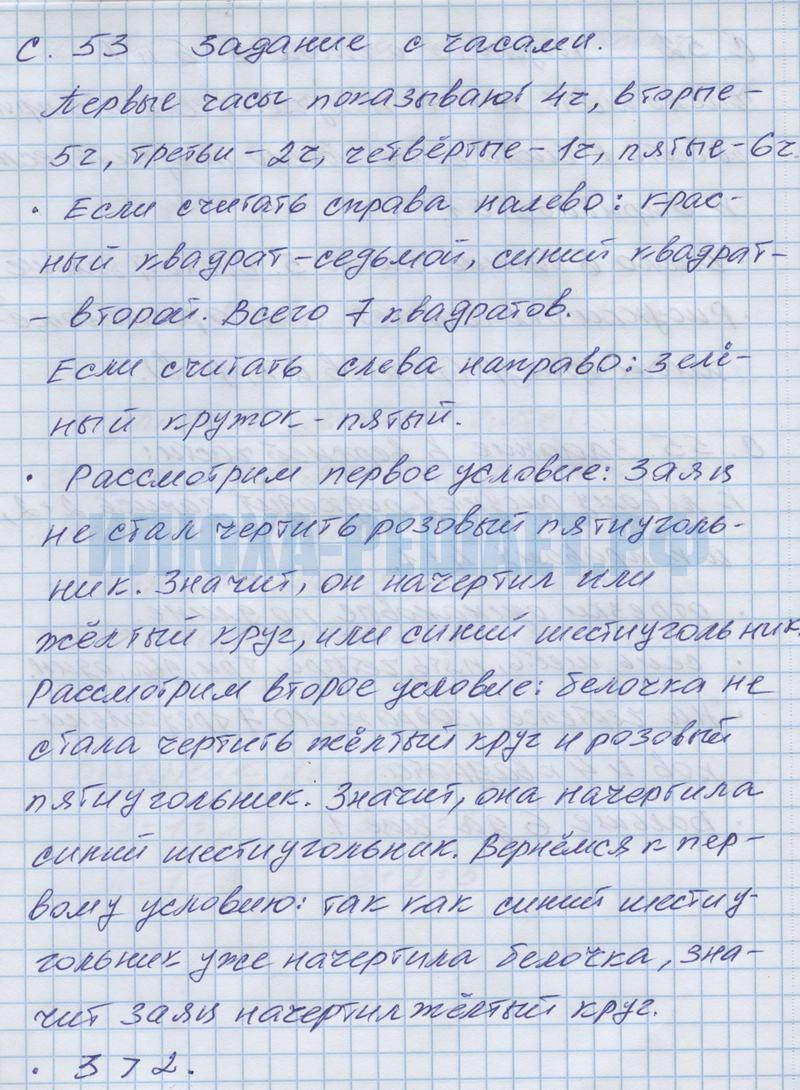 с. 53 Задание с часами.
Первые часы показывают 4ч, вторые –
5ч, третьи – 2ч, четвёртые – 1ч, пятые – 6ч
• Если считать справа налево: крас-
ный квадрат – седьмой, синий квадрат –
– второй. Всего 7 квадратов.
Если считать слева направо: зелё-
ный кружок – пятый.
• Рассмотрим первое условие: Заяц
не стал чертить розовый пятиуголь-
ник. Значит, он начертил или
жёлтый круг, или синий шестиугольник.
Рассмотрим второе условие: белочка не
стала чертить жёлтый круг и розовый
пятиугольник. Значит, она начертила
синий шестиугольник. Вернёмся к пер-
вому условию: так как синий шестиу-
гольник уже начертила белочка, зна-
чит заяц начертил жёлтый круг.
• 3 > 2.